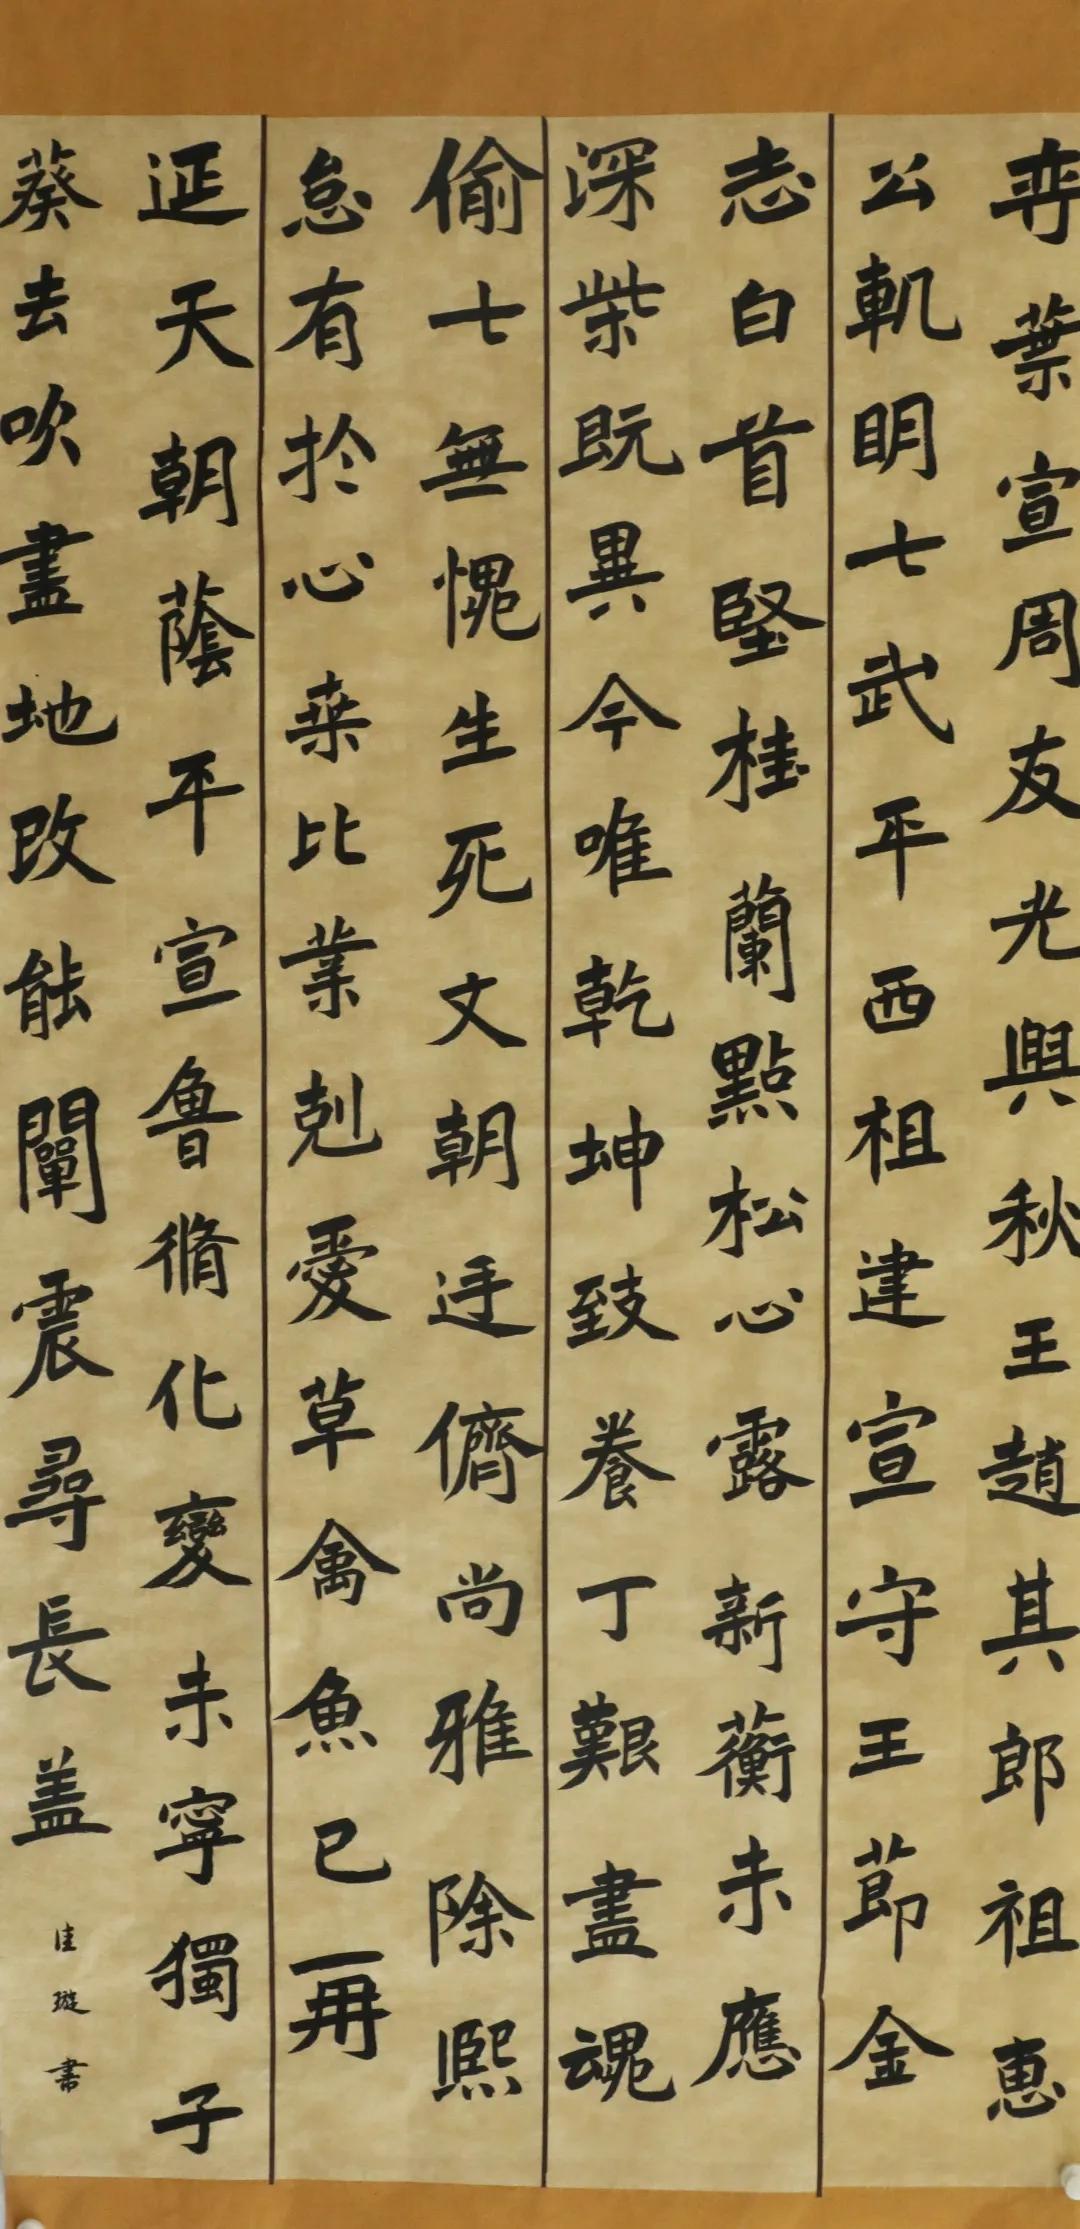 弈葉宣周友光輿秋王趙其郎祖惠
公軌明七武平西祖建宣守王節金
志白首堅桂蘭點松心露新蘅未應
深柴既異今唯乾坤致養丁艱盡魂
偷七無愧生死文朝迂儕尚雅除熙
怠有於心桒比業剋愛草禽魚已再
延天朝蔭平宣魯脩化變未寧獨子
葵去吹盡地改能闡震尋長盖
佳璇書